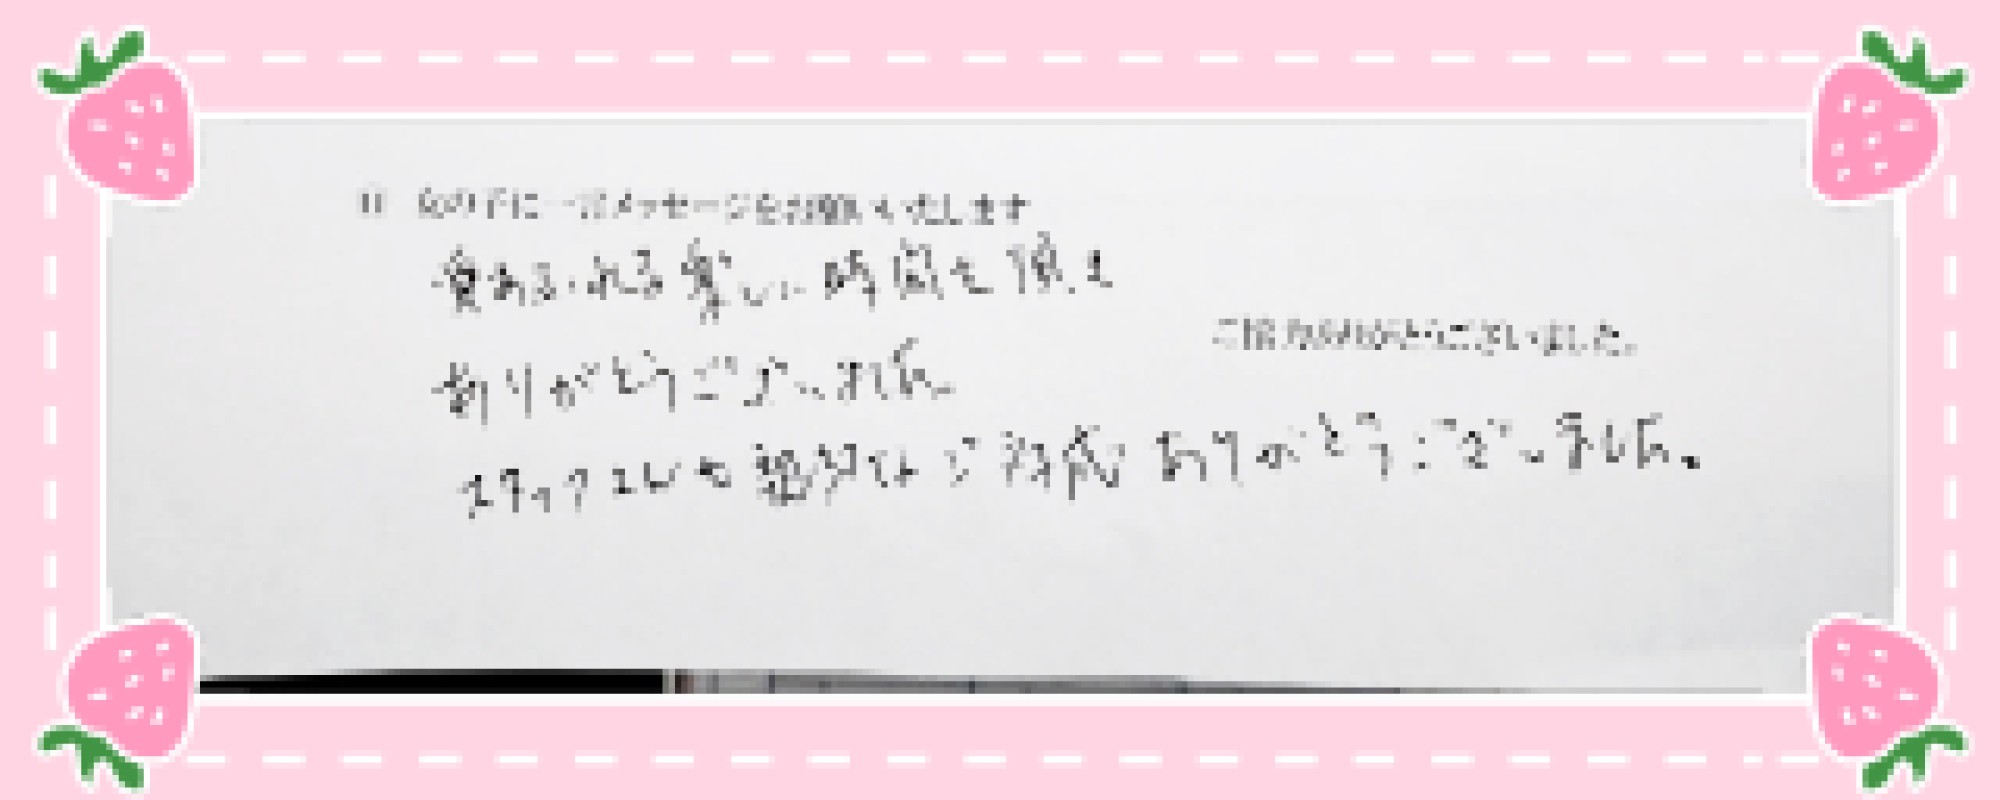 一言メッセージをお願いいたします
愛あふれる楽しい時間を頂き
ありがとうございました。
ご協力ありがとうございました。
スタッフさんも親切なご対応ありがとうございました。